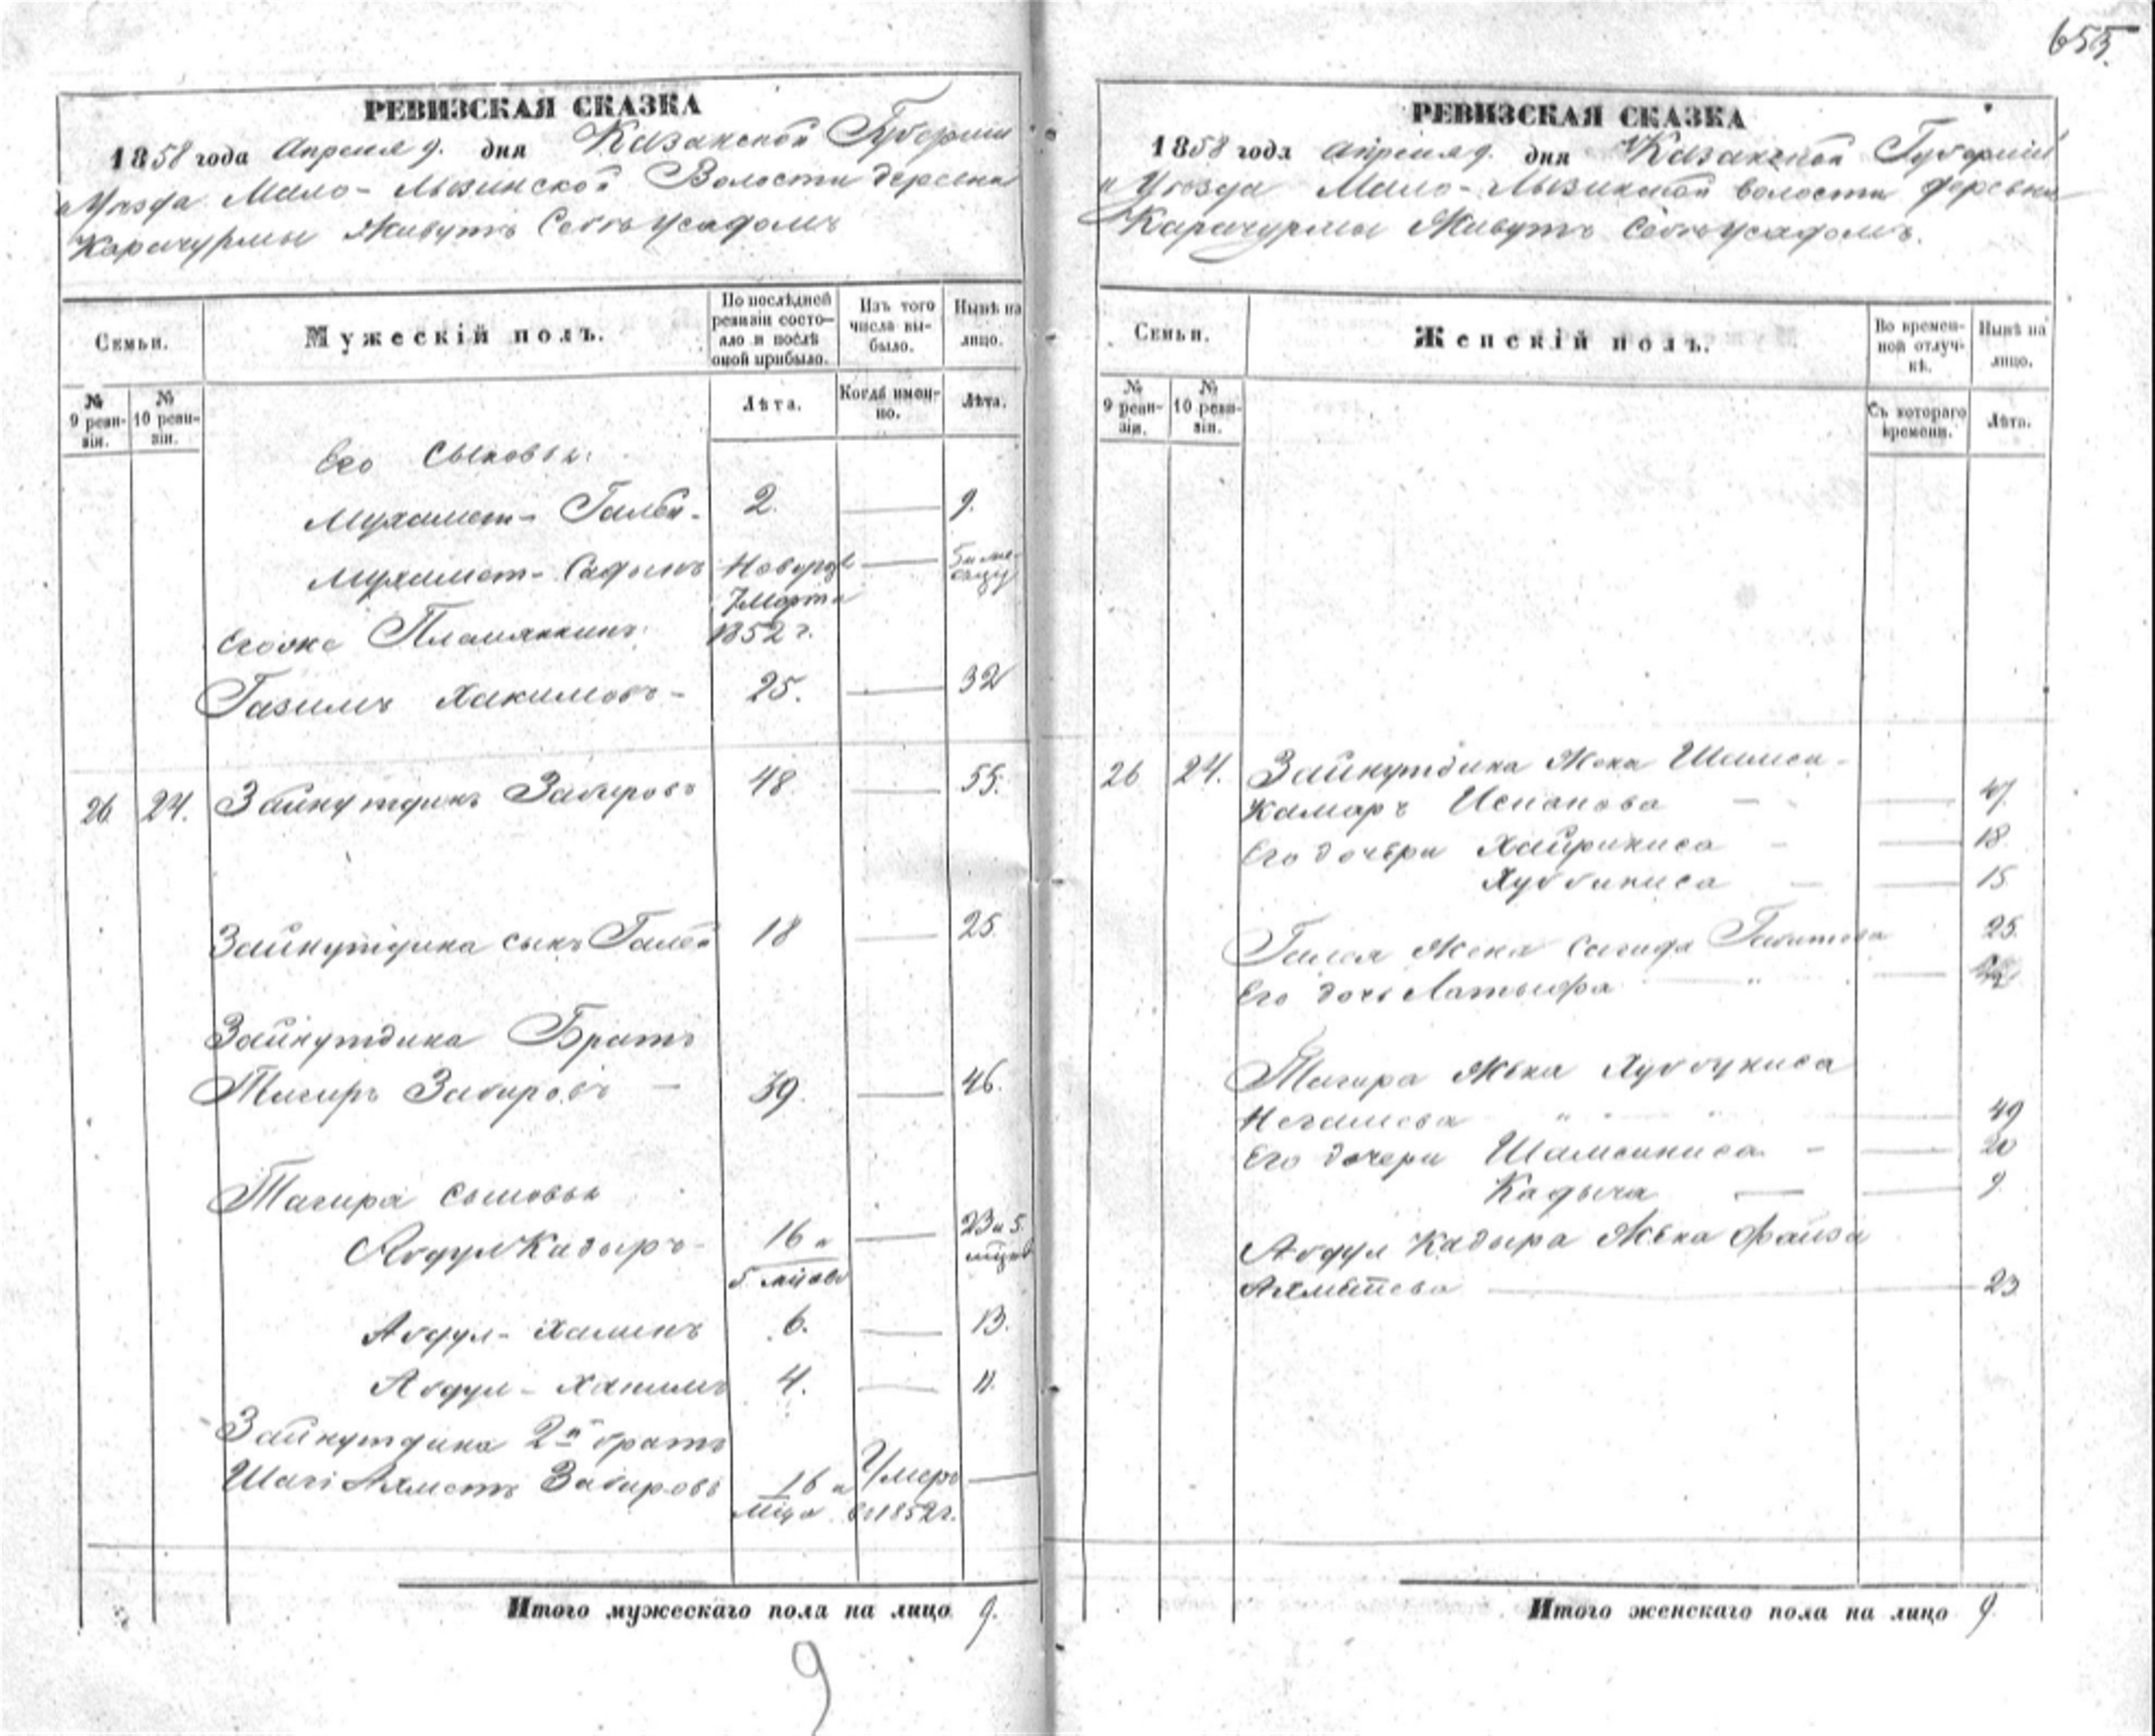 655.
РЕВИЗСКАЯ СКАЗКА
1858 года Апреля 9. дня Казанской Губернии
и Уезда Мало- Лызинской Волости деревни
Карачурмы Живутъ Себѣ усадомъ
Семьи.
Мужескій полъ.
По послѣдней ревизіи состояло и послѣ оной прибыло.
Изъ того числа выбыло.
Нынѣ на лицо.
№ 9 ревизіи.
№ 10 ревизіи.
Лѣта.
Когда именно.
Лѣта.
Его Сыновья:
Мухамет- Галѣй - 2. — 9.
Мухамет- Садыкъ Новорож — 
7 Марта
Егоже Племянникъ: 1852 г.
Газимъ Хакимовъ - 25. — 32
26. 24. Зайнутдинъ Забировъ 48 — 55.
Зайнутдина сынъ Галѣй 18 — 25.
Зайнутдина Братъ
Тагиръ Забировъ — 39. — 46.
Тагира сыновья
АбдулКадыръ - 16 и — 23 и 5
5 мцовъ мцов
Абдул- Халикъ 6. — 13.
Абдул- Хакимъ 4. — 11.
Зайнутдина 2й братъ
Шагi Ахметъ Забировъ 16 и Умеръ —
мца въ 1852 г.
Итого мужескаго пола на лицо 9.
9
РЕВИЗСКАЯ СКАЗКА
1858 года апреля 9. дня Казанской Губерніи
и Уезда Мало- Лызинской волости деревни
Карачурмы Живутъ Себѣ усадомъ.
Семьи.
Женскій полъ.
Во временной отлучкѣ.
Нынѣ на лицо.
№ 9 ревизіи.
№ 10 ревизіи.
Съ котораго времени.
Лѣта.
26 24. Зайнутдина Жена Шамси-
Камаръ Испанова — — 47.
Его дочери Хайриниса - — 18
Хуббиниса — — 15
Галея Жена Сагида Габитова 25.
Его дочь Латыфа — " —
Тагира Жена Хуббуниса
" " — 49
Его дочери Шамсиниса - — 20
Кадыча — — 9.
Абдул Кадыра Жена Фаиза
Ахметева — 23
Итого женскаго пола на лицо 9.